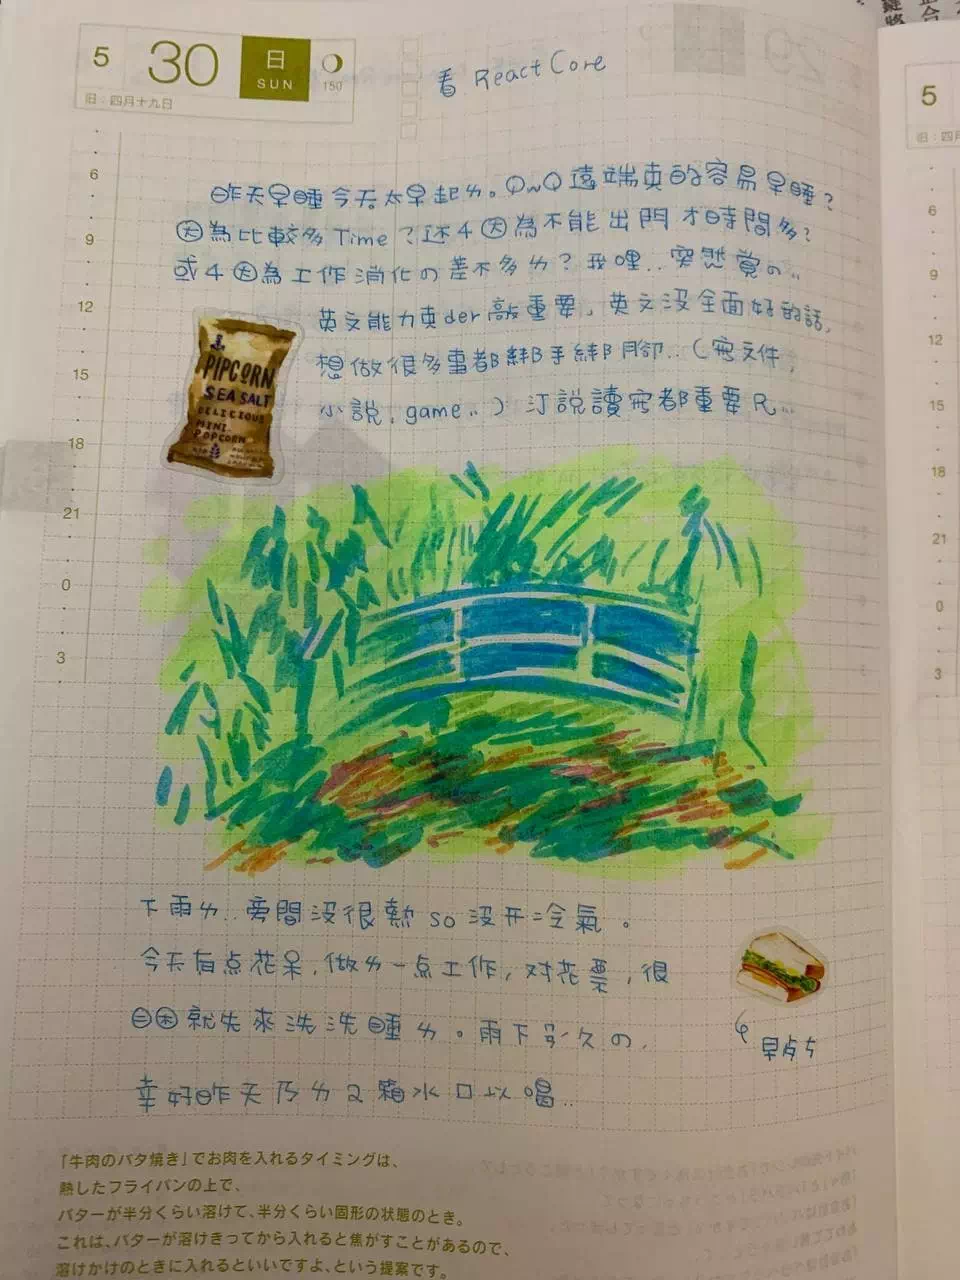 5 30 日 SUN 150
旧:四月十九日
看 React Core
昨天早睡今天太早起ㄌ。QwQ 遠端真的容易早睡?
因為比較多Time?还4因為不能出門才時間多?
或4因為工作消化の差不多ㄌ?我哩..突然覚の..
英文能力真der敲重要,英文沒全面好的話,
想做很多事都綁手綁脚..(寫文件,
小說,game..)汀説讀寫都重要尺...
PIPCORN
SEA SALT
DELICIOUS
MINI
POPCORN
6
9
12
15
18
21
0
3
下雨ㄌ..旁間没很熱 so 没开冷氣。
今天有点花呆,做ㄌ一点工作,对花票,很
困就先來洗洗睡ㄌ。雨下多久の,
幸好昨天乃ㄌ2箱水口以喝..
早点ㄘ
「牛肉のバタ焼き」でお肉を入れるタイミングは、
熱したフライパンの上で、
バターが半分くらい溶けて、半分くらい固形の状態のとき。
これは、バターが溶けきってから入れると焦がすことがあるので、
溶けかけのときに入れるといいですよ、という提案です。
5
旧:四月
6
9
12
15
18
21
0
3